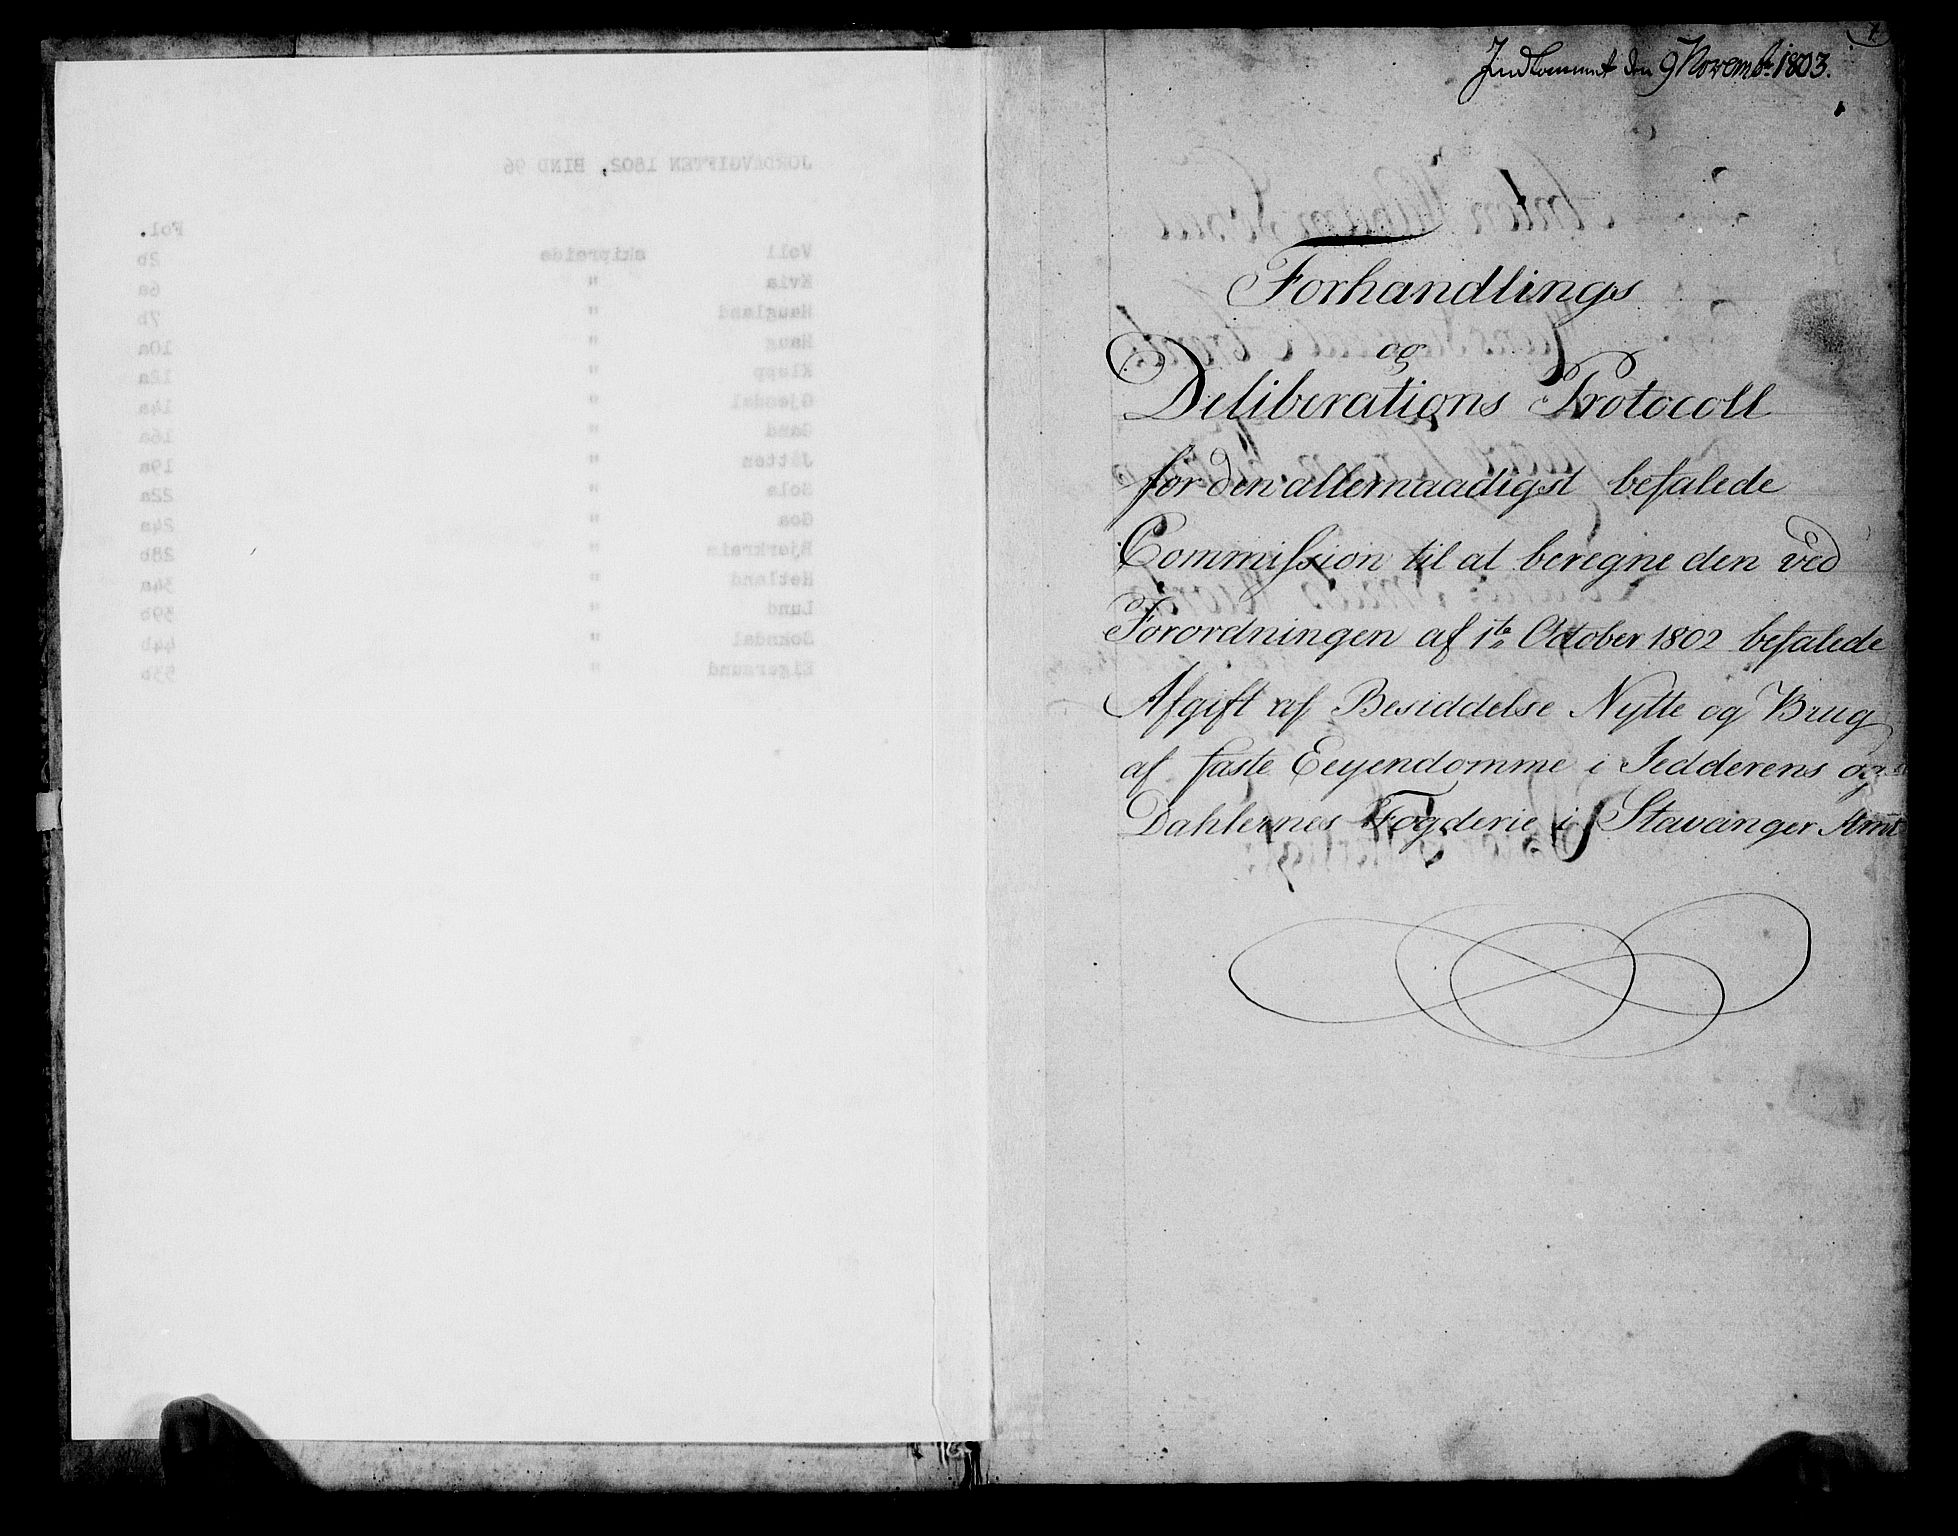 JORDAVGIFTEN 1802, BIND 96
Fol.
Voll skipreide 2b
Kvia " 6a
Haugland " 7b
Haug " 10a
Klepp " 12a
Gjesdal " 14a
Gand " 16a
Jåtten " 19a
Sola " 22a
Goa " 24a
Bjerkreim " 28b
Hetland " 34a
Lund " 39b
Sokndal " 44b
Eigersund " 53b
Indkommet den 9 Novembr 1803.
Forhandlings
og
Deliberations Protocoll
for den allernaadigst befalede
Commission til at beregne den ved
Forordningen af 1te October 1802 befalede
Afgift af Besiddelse Nytte og Brug
af faste Eeyendomme i Jedderens og
Dahlernes Fogderie i Stavanger Amt